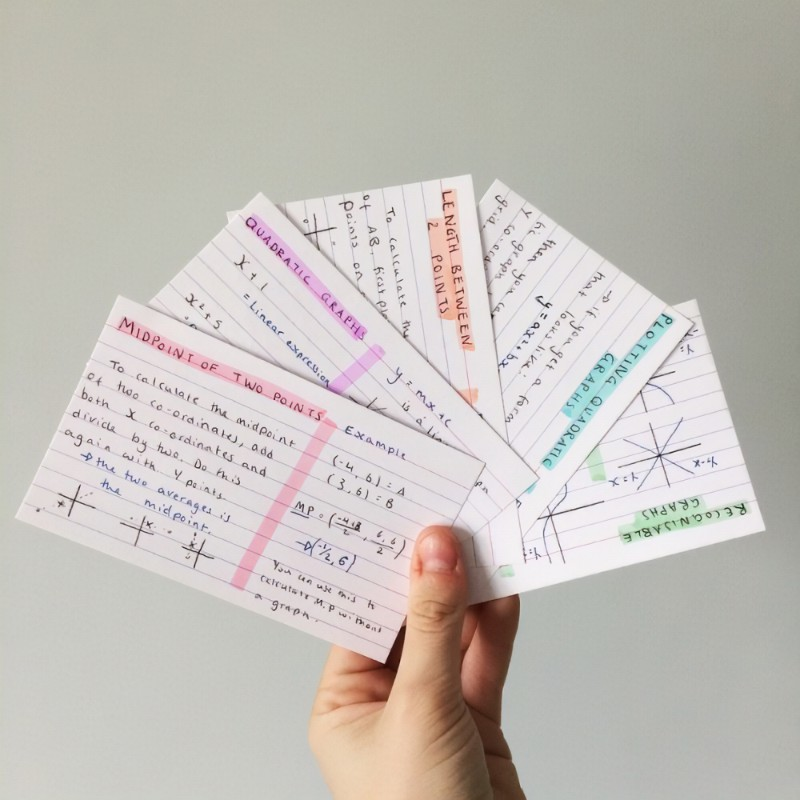 MIDPOINT OF TWO POINTS
To calculate the midpoint
of two co-ordinates, add
both x co-ordinates and
divide by two. Do this
again with Y points
→ the two averages is
the midpoint.
Example
(-4, 6) = A
(3, 6) = B
MP =
→ (-1/2, 6)
You can use this to
calculate M.P without
a graph.
QUADRATIC GRAPHS
x + 1
= Linear expression
x² + 5
y = mx + c
is a
LENGTH BETWEEN
2 POINTS
To calculate the
of AB, first
points on
PLOTTING QUADRATIC
GRAPHS
→ if you get a form
that looks like:
y = ax² + bx
then you
the graph
Y co-ord
grid
RECOGNISABLE
GRAPHS
y=x
y=-x